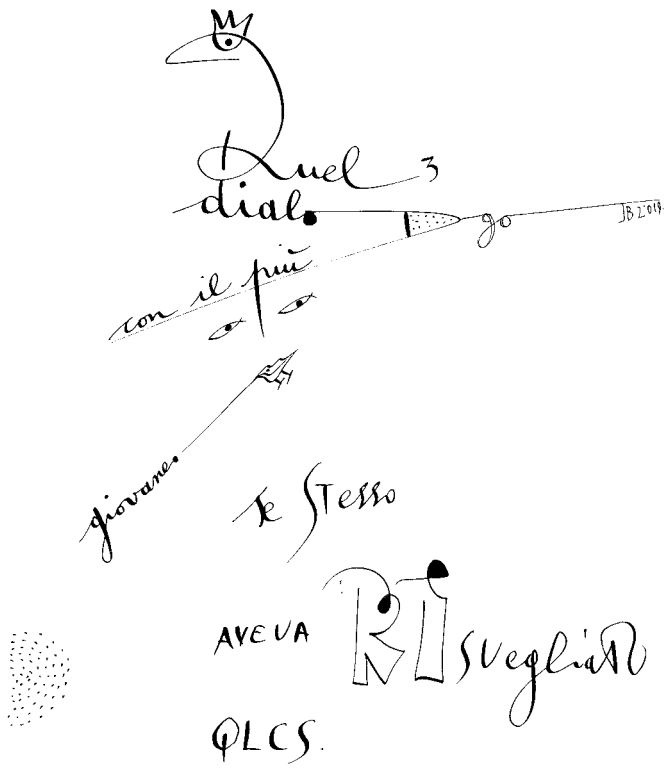 Quel 3
dialogo
JB 2'018.
con il più
giovane
Te stesso
AVEVA RISvegliato
QLCS.